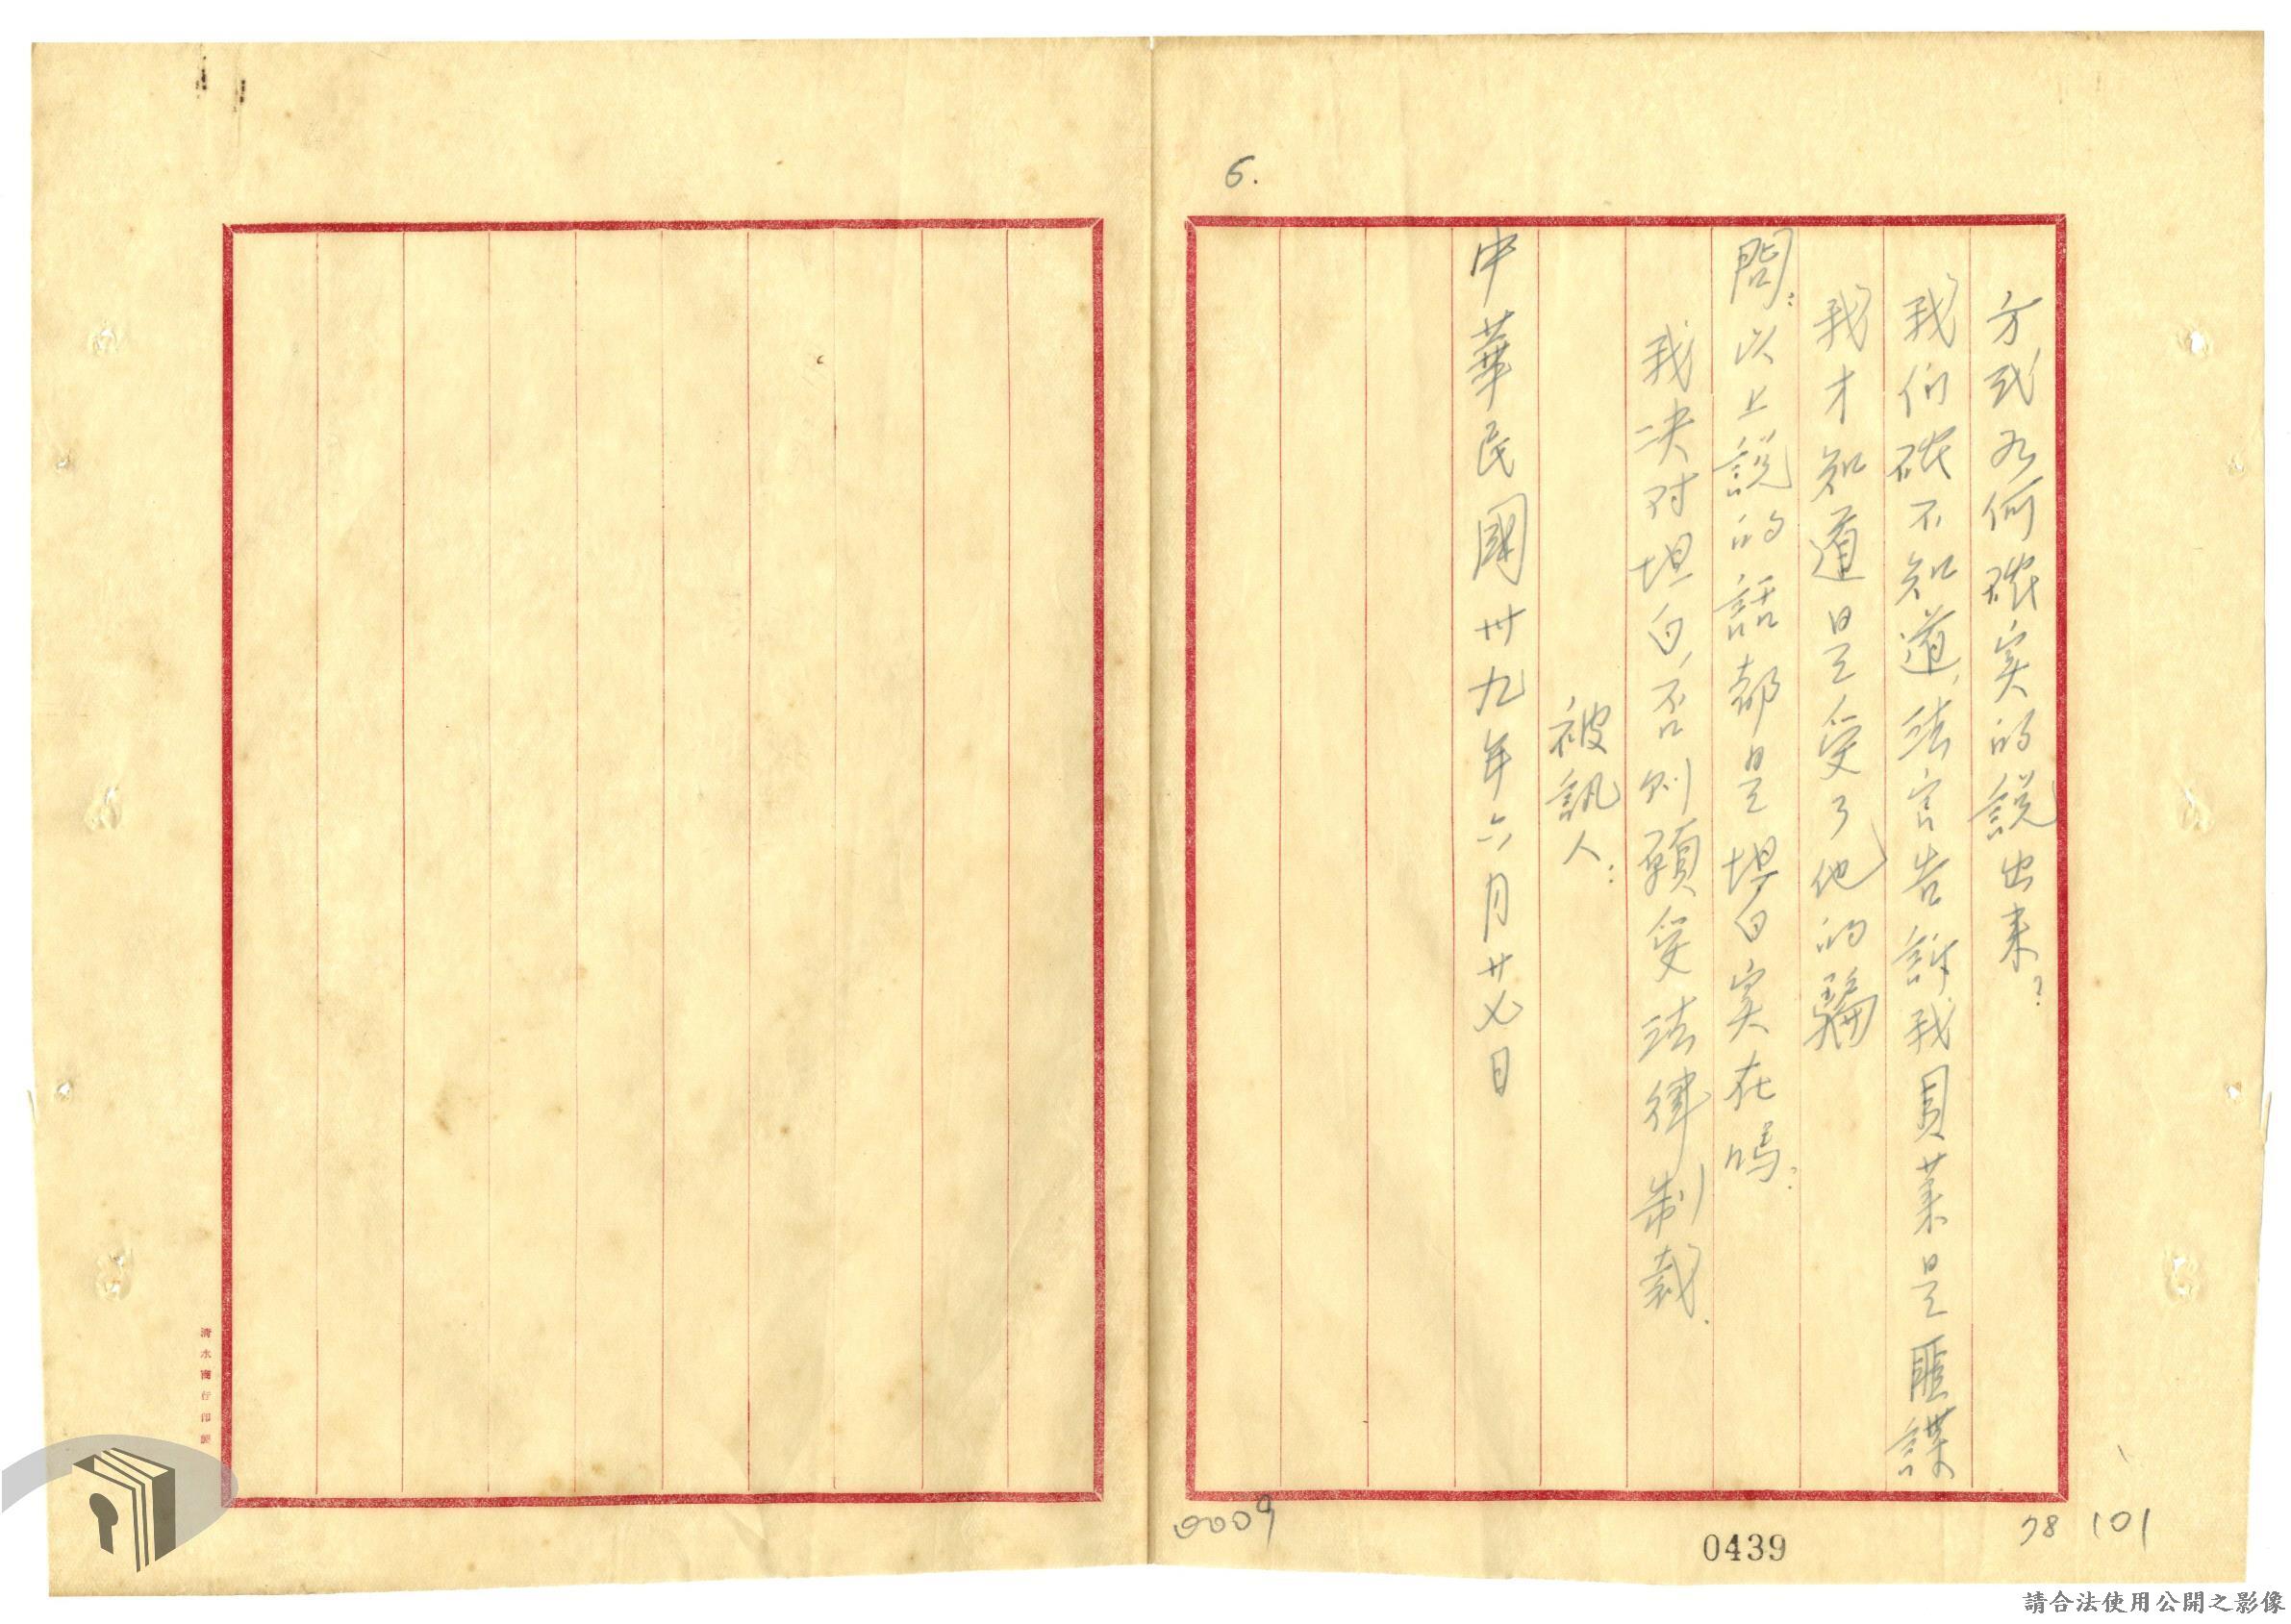 6.
方式如何確实的說出来?
我们確不知道,法官告訴我員葉是匪諜
我才知道是受了他的騙
問:以上說的話都是坦白実在嗎?
我决对坦白,否则願受法律制裁.
被訊人:
中華民國卅九年六月廿七日
清水商行印製
0009
0439
78 101
請合法使用公開之影像